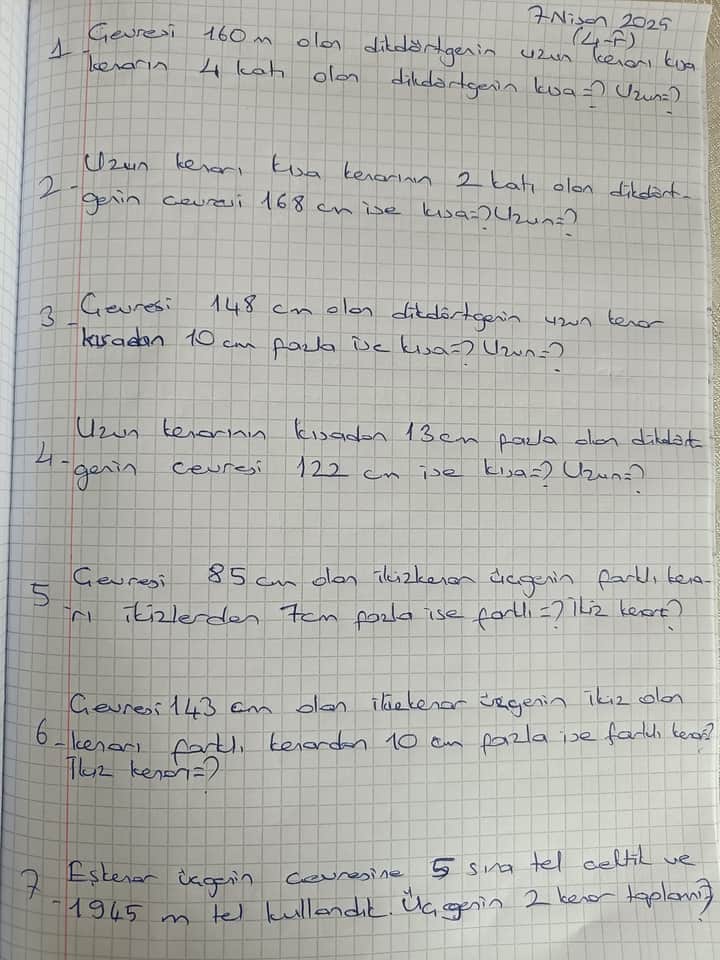 7 Nisan 2025
(4-F)
1- Çevresi 160 m olan dikdörtgenin uzun kenarı kısa
kenarın 4 katı olan dikdörtgenin kısa=? Uzun=?
2- Uzun kenarı kısa kenarının 2 katı olan dikdört-
genin çevresi 168 cm ise kısa=? Uzun=?
3- Çevresi 148 cm olan dikdörtgenin uzun kenar
kısadan 10 cm fazla ise kısa=? Uzun=?
4- Uzun kenarının kısadan 13 cm fazla olan dikdört
genin çevresi 122 cm ise kısa=? Uzun=?
5 Çevresi 85 cm olan ikizkenar üçgenin farklı kena-
rı ikizlerden 7cm fazla ise farklı=? İkiz kenar?
6- Çevresi 143 cm olan ikizkenar üçgenin ikiz olan
kenarı farklı kenardan 10 cm fazla ise farklı kenar?
İkiz kenarı=?
7- Eşkenar üçgenin çevresine 5 sıra tel çektik ve
1945 m tel kullandık. Üçgenin 2 kenar toplamı?